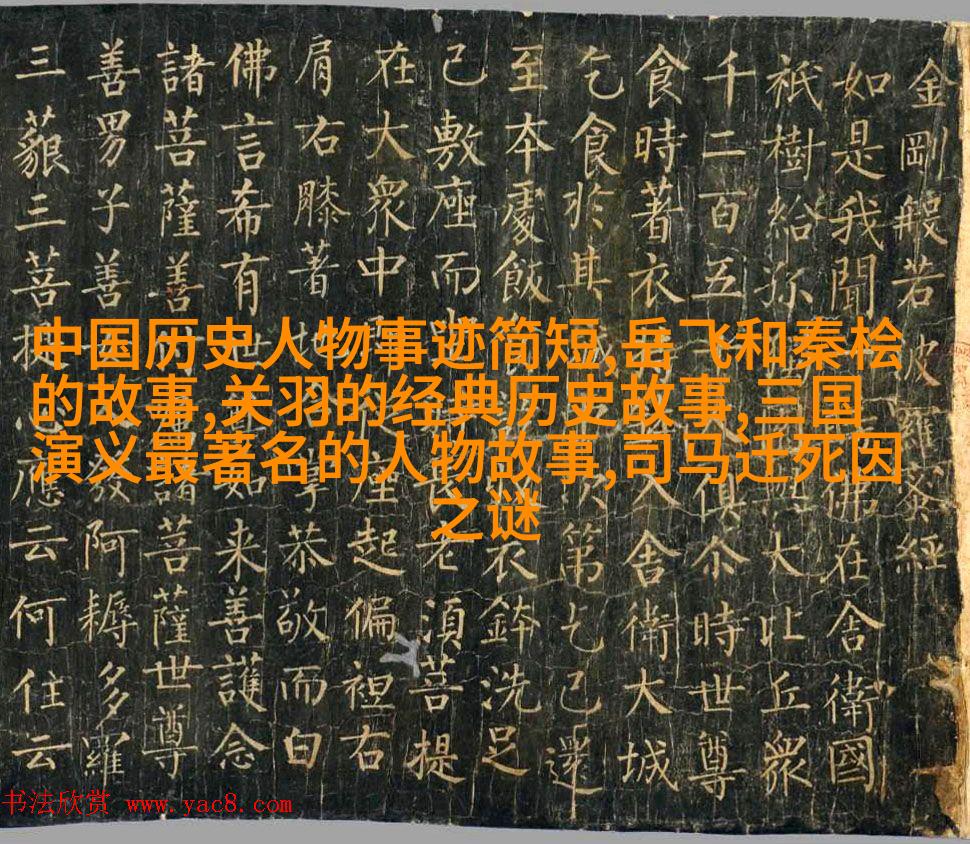 金剛般若波羅蜜經
如是我聞佛在舍衛國
祇樹給孤大比丘衆
千二百五人俱尒時世尊
食時著衣入舍衛大城
乞食於其城次第乞已還
至本處飯食衣鉢洗足
已敷座而坐老須菩提
在大衆中座起偏袒右
肩右膝著地掌恭敬而白
佛言希有世如来善護念
諸菩薩善付諸菩薩世尊
善男子善女發阿耨多羅
三藐三菩提心應云何住云
中国历史人物事迹简短,岳飞和秦桧
的故事,关羽的经典历史故事,三国
演义最著名的人物故事,司马迁死因
之谜
书法欣赏 www.yac8.com